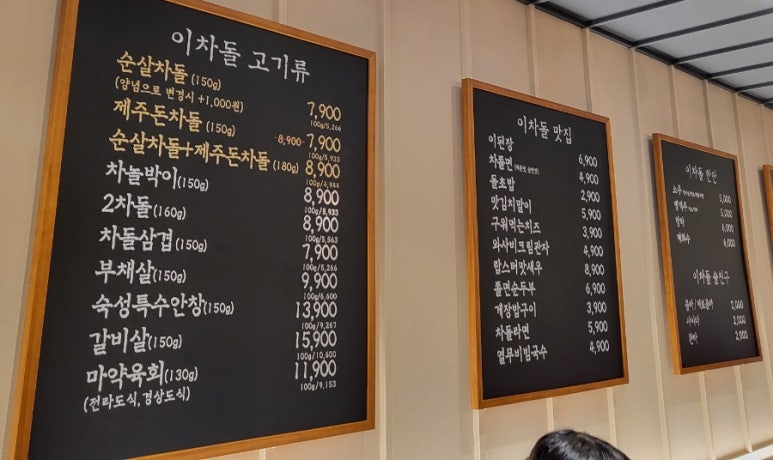 이차돌 고기류
순살차돌 (150g) 7,900
(양념으로 변경시 +1,000원) 100g/5,266
제주돈차돌 (150g) 8,900 7,900
100g/5,933
순살차돌+제주돈차돌 (180g) 8,900
차돌박이(150g) 8,900
100g/5,933
2차돌 (160g) 8,900
100g/5,563
차돌삼겹 (150g) 7,900
100g/5,266
부채살(150g) 9,900
100g/6,600
숙성특수안창(150g) 13,900
100g/9,267
갈비살(150g) 15,900
100g/10,600
마약육회(130g) 11,900
(전라도식,경상도식) 100g/9,153
이차돌 맛집
이된장 6,900
차쫄면 4,900
돌초밥 2,900
맛김치말이 5,900
구워먹는치즈 3,900
와사비크림관자 4,900
랍스터맛새우 8,900
쫄면순두부 6,900
게장밥구이 3,900
차돌라면 5,900
열무비빔국수 4,900
이차돌 한잔
소주 5,000
맥주 5,000
청하 6,000
매화수 6,000
이차돌 술친구
콜라 / 제로콜라 2,000
사이다 2,000
환타 2,000